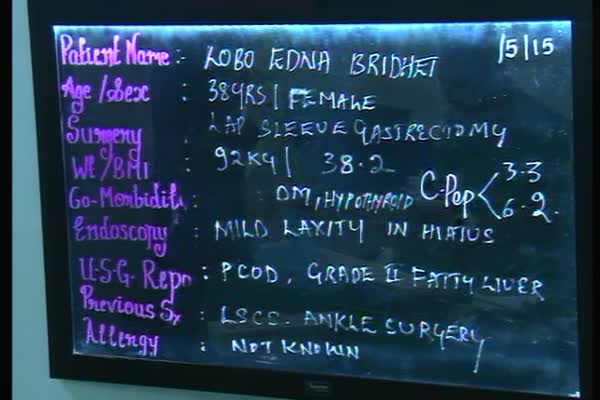 Patient Name :- LOBO EDNA BRIDHET /5/15
Age/Sex : 38YRS | FEMALE
Surgery : LAP SLEEVE GASTRECTOMY
Wt/BMI : 92Kg | 38.2
Co-Morbiditi : DM, HYPOTHYROID C-Pep < 3.3 6.2.
Endoscopy : MILD LAXITY IN HIATUS
U.S.G. Repo : PCOD, GRADE II FATTY LIVER
Previous Sx : LSCS. ANKLE SURGERY
Allergy : NOT KNOWN